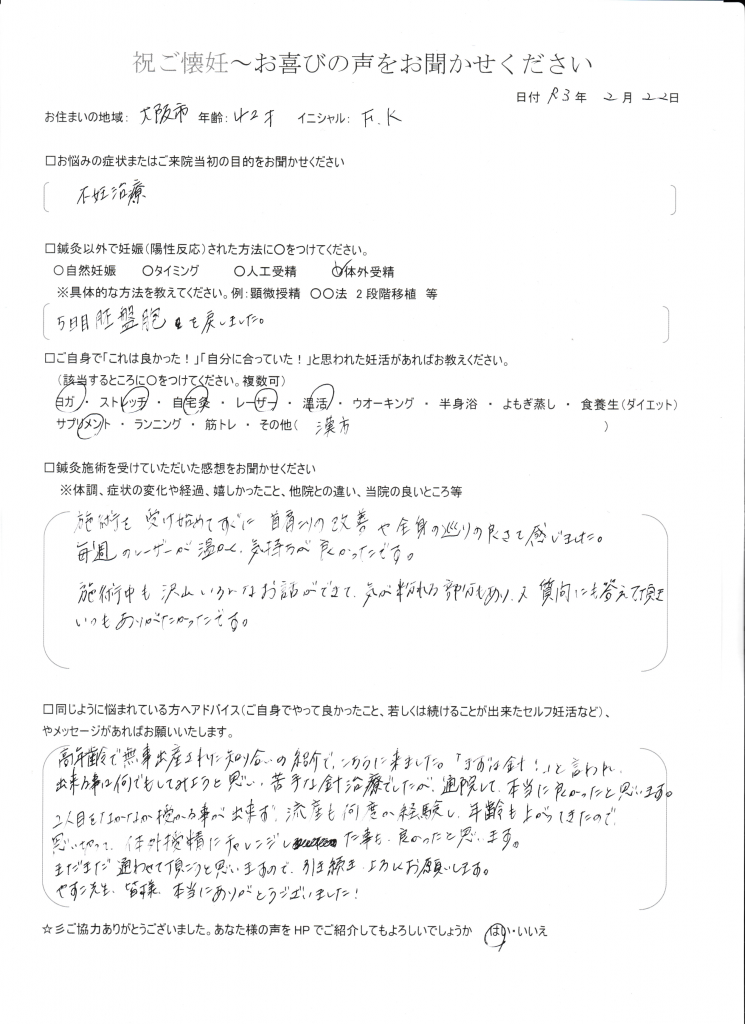 祝ご懐妊～お喜びの声をお聞かせください
日付 R3年 2月 22日
お住まいの地域: 大阪市 年齢: 42才 イニシャル: F.K
□お悩みの症状またはご来院当初の目的をお聞かせください
不妊治療
□鍼灸以外で妊娠(陽性反応)された方法に○をつけてください。
○自然妊娠 ○タイミング ○人工受精 ○体外受精
※具体的な方法を教えてください。例:顕微授精 ○○法 2段階移植 等
5日目胚盤胞を戻しました。
□ご自身で「これは良かった!」「自分に合っていた!」と思われた妊活があればお教えください。
(該当するところに○をつけてください。複数可)
ヨガ ・ ストレッチ ・ 自宅灸 ・ レーザー ・ 温活 ・ ウオーキング ・ 半身浴 ・ よもぎ蒸し ・ 食養生(ダイエット)
サプリメント ・ ランニング ・ 筋トレ ・ その他( 漢方 )
□鍼灸施術を受けていただいた感想をお聞かせください
※体調、症状の変化や経過、嬉しかったこと、他院との違い、当院の良いところ等
施術を受け始めてすぐに首肩こりの改善や全身の巡りの良さを感じました。
毎週のレーザーが温かく、気持ちが良かったです。
施術中も沢山いろいろなお話ができて、気が紛れる部分もあり、又質問にも答えて頂き
いつもありがたかったです。
□同じように悩まれている方へアドバイス(ご自身でやって良かったこと、若しくは続けることが出来たセルフ妊活など)、
やメッセージがあればお願いいたします。
高年齢で無事出産された知り合いの紹介で、こちらに来ました。「まずは針!」と言われ、
出来る事は何でもしてみようと思い、苦手な針治療でしたが、通院して、本当に良かったと思います。
2人目をなかなか授かる事が出来ず、流産も何度か経験し、年齢も上がってきたので、
思い切って、体外授精にチャレンジした事も、良かったと思います。
まだまだ通わせて頂こうと思いますので、引き続き、よろしくお願いします。
やすこ先生、皆様、本当にありがとうございました!
☆彡ご協力ありがとうございました。あなた様の声をHPでご紹介してもよろしいでしょうか はい・いいえ